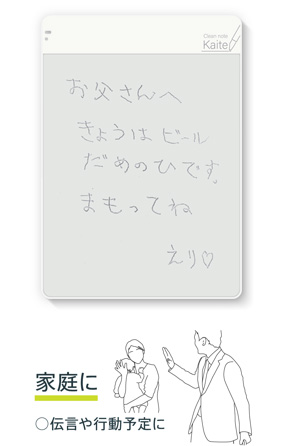 Clean note
Kaite
お父さんへ
きょうは ビール
だめのひです。
まもってね
えり♡
家庭に
○伝言や行動予定に